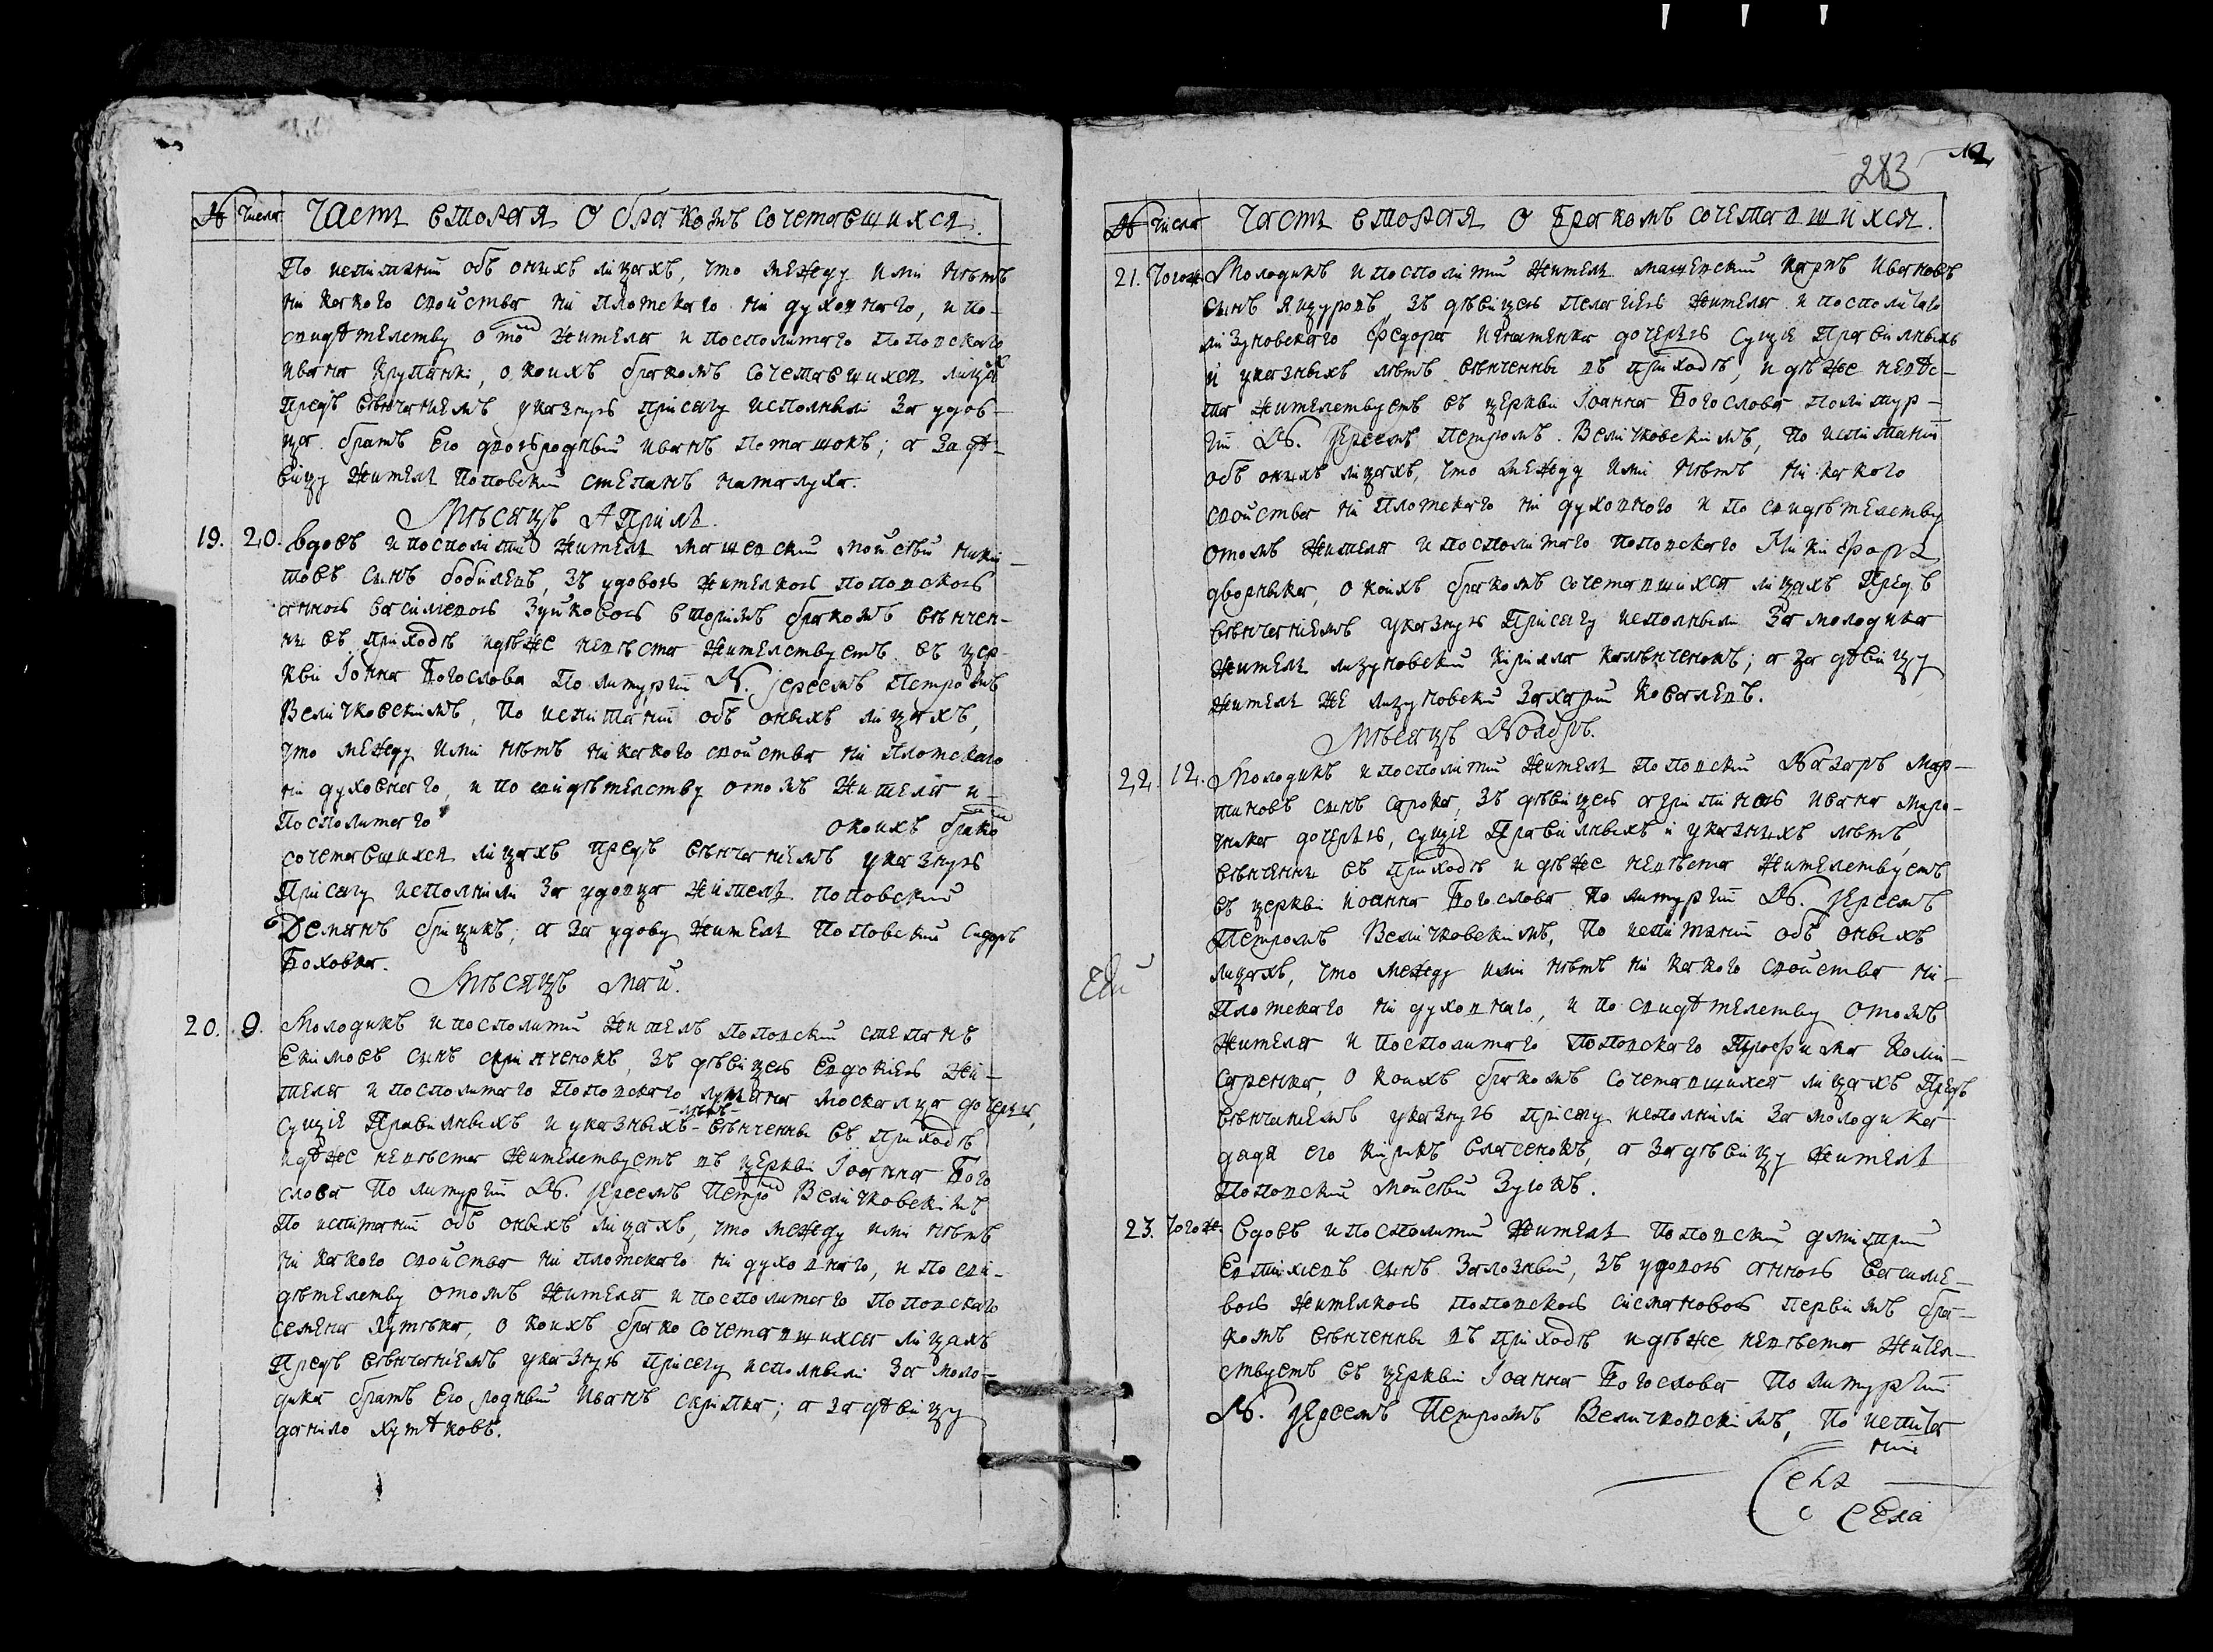 № Числа Часть вторая О бракомъ сочетавшихся.
По испитанїи объ онихъ лицахъ, что между ими нѣтъ
ни какого свойства ни плотскаго ни духовнаго, и по-
свидѣтелству о том жителя и посполитаго поповскаго
Ивана Крупянки, о коихъ бракомъ сочетавшихся лицах
предъ вѣнчанїемъ указную присягу исполныли за удов-
ца братъ его двоюродный иванъ ; а за дѣ-
вицу житель поповский степанъ
Мѣсяцъ Априль.
19. 20. Вдовъ и посполитий житель мацевский моисѣй ники-
товъ синъ бобилевъ, зъ удовою жителкою поповскою
анною василиевою Зуйковою вторимъ бракомъ вѣнчен-
ни въ приходѣ идѣже невѣста жителствуетъ въ цер-
кви Іоанна Богослова по литургїи №. їереемъ Петромъ
Величковскимъ, по испитанїи объ оныхъ лицахъ,
что между ими нѣтъ никакого свойства ни плотскаго
ни духовнаго, и по свидѣтелству отомъ жителя и
посполитаго окоихъ брако
сочетавшихся лицахъ предъ вѣнчанїемъ указную
присягу исполнили за удовца житель поповский
Демянъ брицикъ; а за удову житель поповский Сидоръ
Боховка.
Мѣсяцъ Маїй.
20. 9. Молодикъ и посполитий житель поповский степанъ
Екимовъ синъ скрипченокъ, зъ дѣвицею евдокїею жи-
теля и посполитаго поповскаго москалца дочерью,
сущїе правилныхъ и указныхъ лѣтъ вѣнченны въ приходѣ
идѣже невѣста жителствуетъ въ церкви Іоанна Бого
слова по литургїи №. їереемъ Петром Величковскимъ
По испитанїи объ оныхъ лицахъ, что между ими нѣтъ
ни какого свойства ни плотскаго ни духовнаго, и по сви-
дѣтелству отомъ жителя и посполитаго поповскаго
семена хутѣка, о коихъ брако сочетавшихся лицахъ
предъ вѣнчанїемъ указную присягу исполныли за моло-
дика братъ его родный Иванъ скрипка; а за дѣвицу
данило хутѣковъ.
283
№ Числа Часть вторая О Бракомъ сочетавшихся.
21. Тогож Молодикъ и посполитий житель мацевский карпъ Ивановъ
синъ Яцуровъ, зъ дѣвицею пелагїею жителя и посполитаго
лизуновскаго Федора Игнатенка дочерью сущїе правилныхъ
и указныхъ лѣтъ вѣнченны въ приходѣ, идѣже невѣс-
та жителствуетъ въ церкви Іоанна Богослова политур-
гїи №. їереемъ Петромъ Величковскимъ, по испитанїи
объ онихъ лицахъ, что между ими нѣтъ ни какого
свойства ни плотскаго ни духовного и по свидѣтелству
отомъ жителя и посполитаго поповскаго Никифора
дворника, о коихъ бракомъ сочетавшихся лицахъ предъ
вѣнчанїемъ указную присягу исполныли за молодика
житель лизуновский кирилла калѣнченокъ; а за дѣвицу
житель же лизуновский Захарий Ковалевъ.
Мѣсяцъ Ноябръ.
22. 12. Молодикъ и посполитий житель поповский Назаръ Мар-
тиновъ синъ Сарока, зъ дѣвицею агрипиною Ивана Миро-
ника дочерью, сущїе правилныхъ и указнихъ лѣтъ,
вѣнченни въ приходѣ идѣже невѣста жителствуетъ
въ церкви Іоанна Богослова по литургїи №. їереемъ
Петромъ Величковскимъ, по испитанїи объ оныхъ
лицахъ, что между ими нѣтъ ни какого свойства ни-
плотскаго ни духовнаго, и по свидѣтелству отомъ
жителя и посполитаго поповскаго Трофима Коми-
саренка, о коихъ бракомъ сочетавшихся лицахъ предъ
вѣнчанїемъ указную присягу исполнили за молодика
дядя его кирикъ власенокъ, а за дѣвицу житель
поповский Моисѣй Зуйокъ.
23. Тогож. Вдовъ и посполитий житель поповский димитрий
Евтихиевъ синъ Заглозный, зъ удовою анною василе-
вою жителкою поповскою первимъ бра-
комъ вѣнченны въ приходѣ идѣже невѣста жител-
ствуетъ въ церкви Іоанна Богослова по литургїи
№. їереемъ Петромъ Величковскимъ, по испита
нїи
села